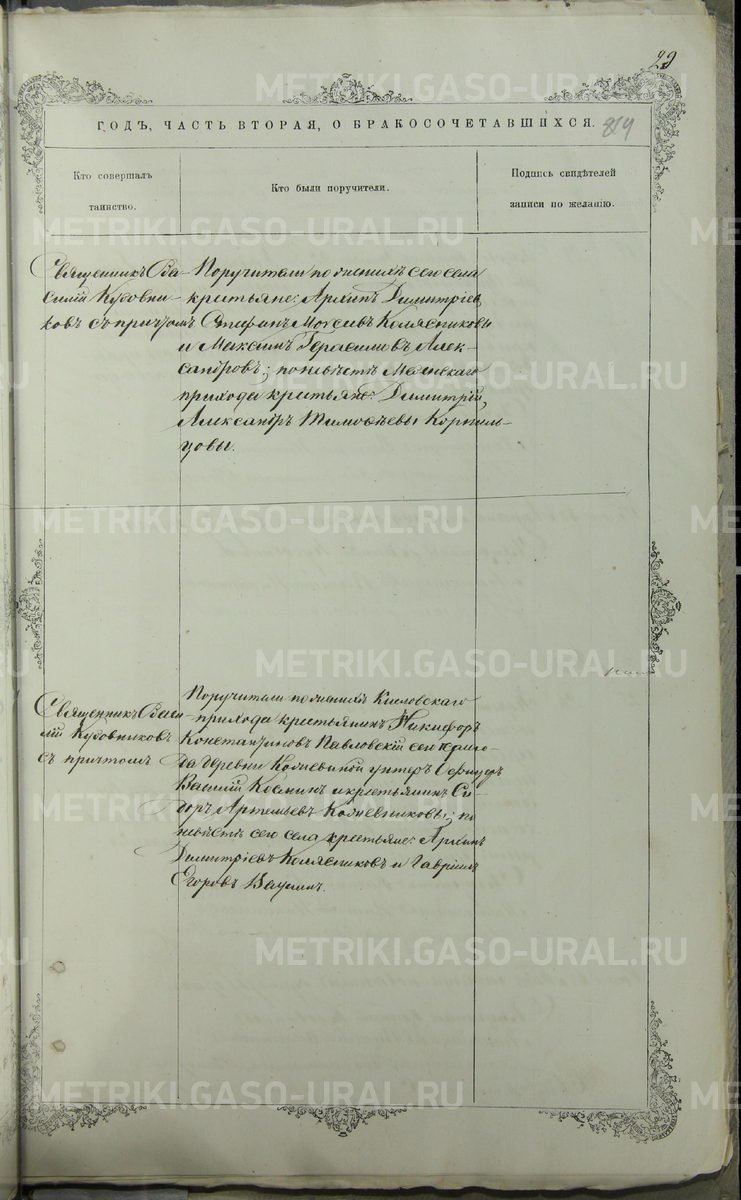 29
ГОДЪ, ЧАСТЬ ВТОРАЯ, О БРАКОСОЧЕТАВШИХСЯ.
819
Кто совершалъ
таинство.
Кто были поручители.
Подпись свидѣтелей
записи по желанію.
Священникъ Ва-
силій Кудовни-
ковъ съ причтомъ
Поручители по женихѣ сего села
крестьяне: Архипъ Димитріевъ,
Стефанъ Моѵсеевъ Колясниковы
и Максимъ Герасимовъ Алек-
сандровъ; по невѣстѣ
прихода крестьяне: Димитрій,
Александръ Тимоѳеевы Корпиль-
цовы.
Священникъ Васи-
лій Кудовниковъ
съ причтомъ
Поручители по женихѣ Кисловскаго
прихода крестьянинъ Никифоръ
Константиновъ Павловскій сего прихо-
да деревни унтеръ Офицеръ
Василій Козминъ и крестьянинъ Си-
доръ Артемьевъ Кожевниковы; по
невѣстѣ сего села крестьяне: Архипъ
Димитріевъ Колясниковъ и Гавріилъ
Егоровъ
METRIKI.GASO-URAL.RU